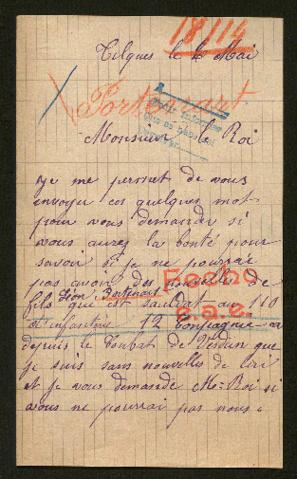 18/14
Tilques le 6 Mai
Portenart
Monsieur le Roi
Je me permet de vous
envoyer ces quelques mot
pour vous demander si
vous aurez la bonté pour
savoir si je ne pourrai
pas avoir des nouvelle de
fils Léon Portenart qui est soldat au 110
d'infanterie 12 Compagnie
Recho
s.a.e.
depuis le Combat de Verdun que
je suis sans nouvelles de
et je vous demande Mr Roi si
vous ne pourrai pas nous